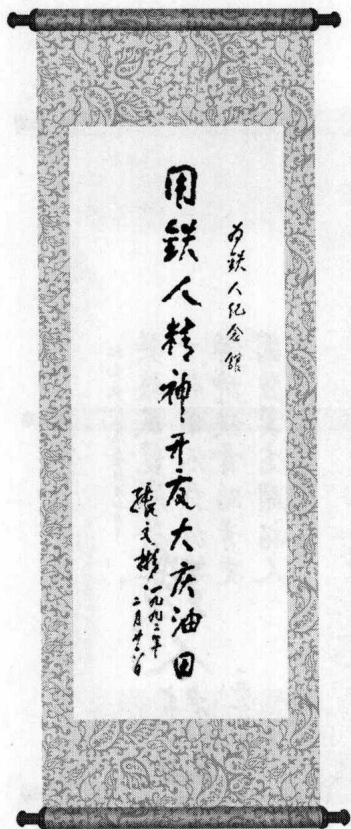 为鉄人纪念馆
用鉄人精神开发大庆油田
張文彬 一九九二年
二月廿日